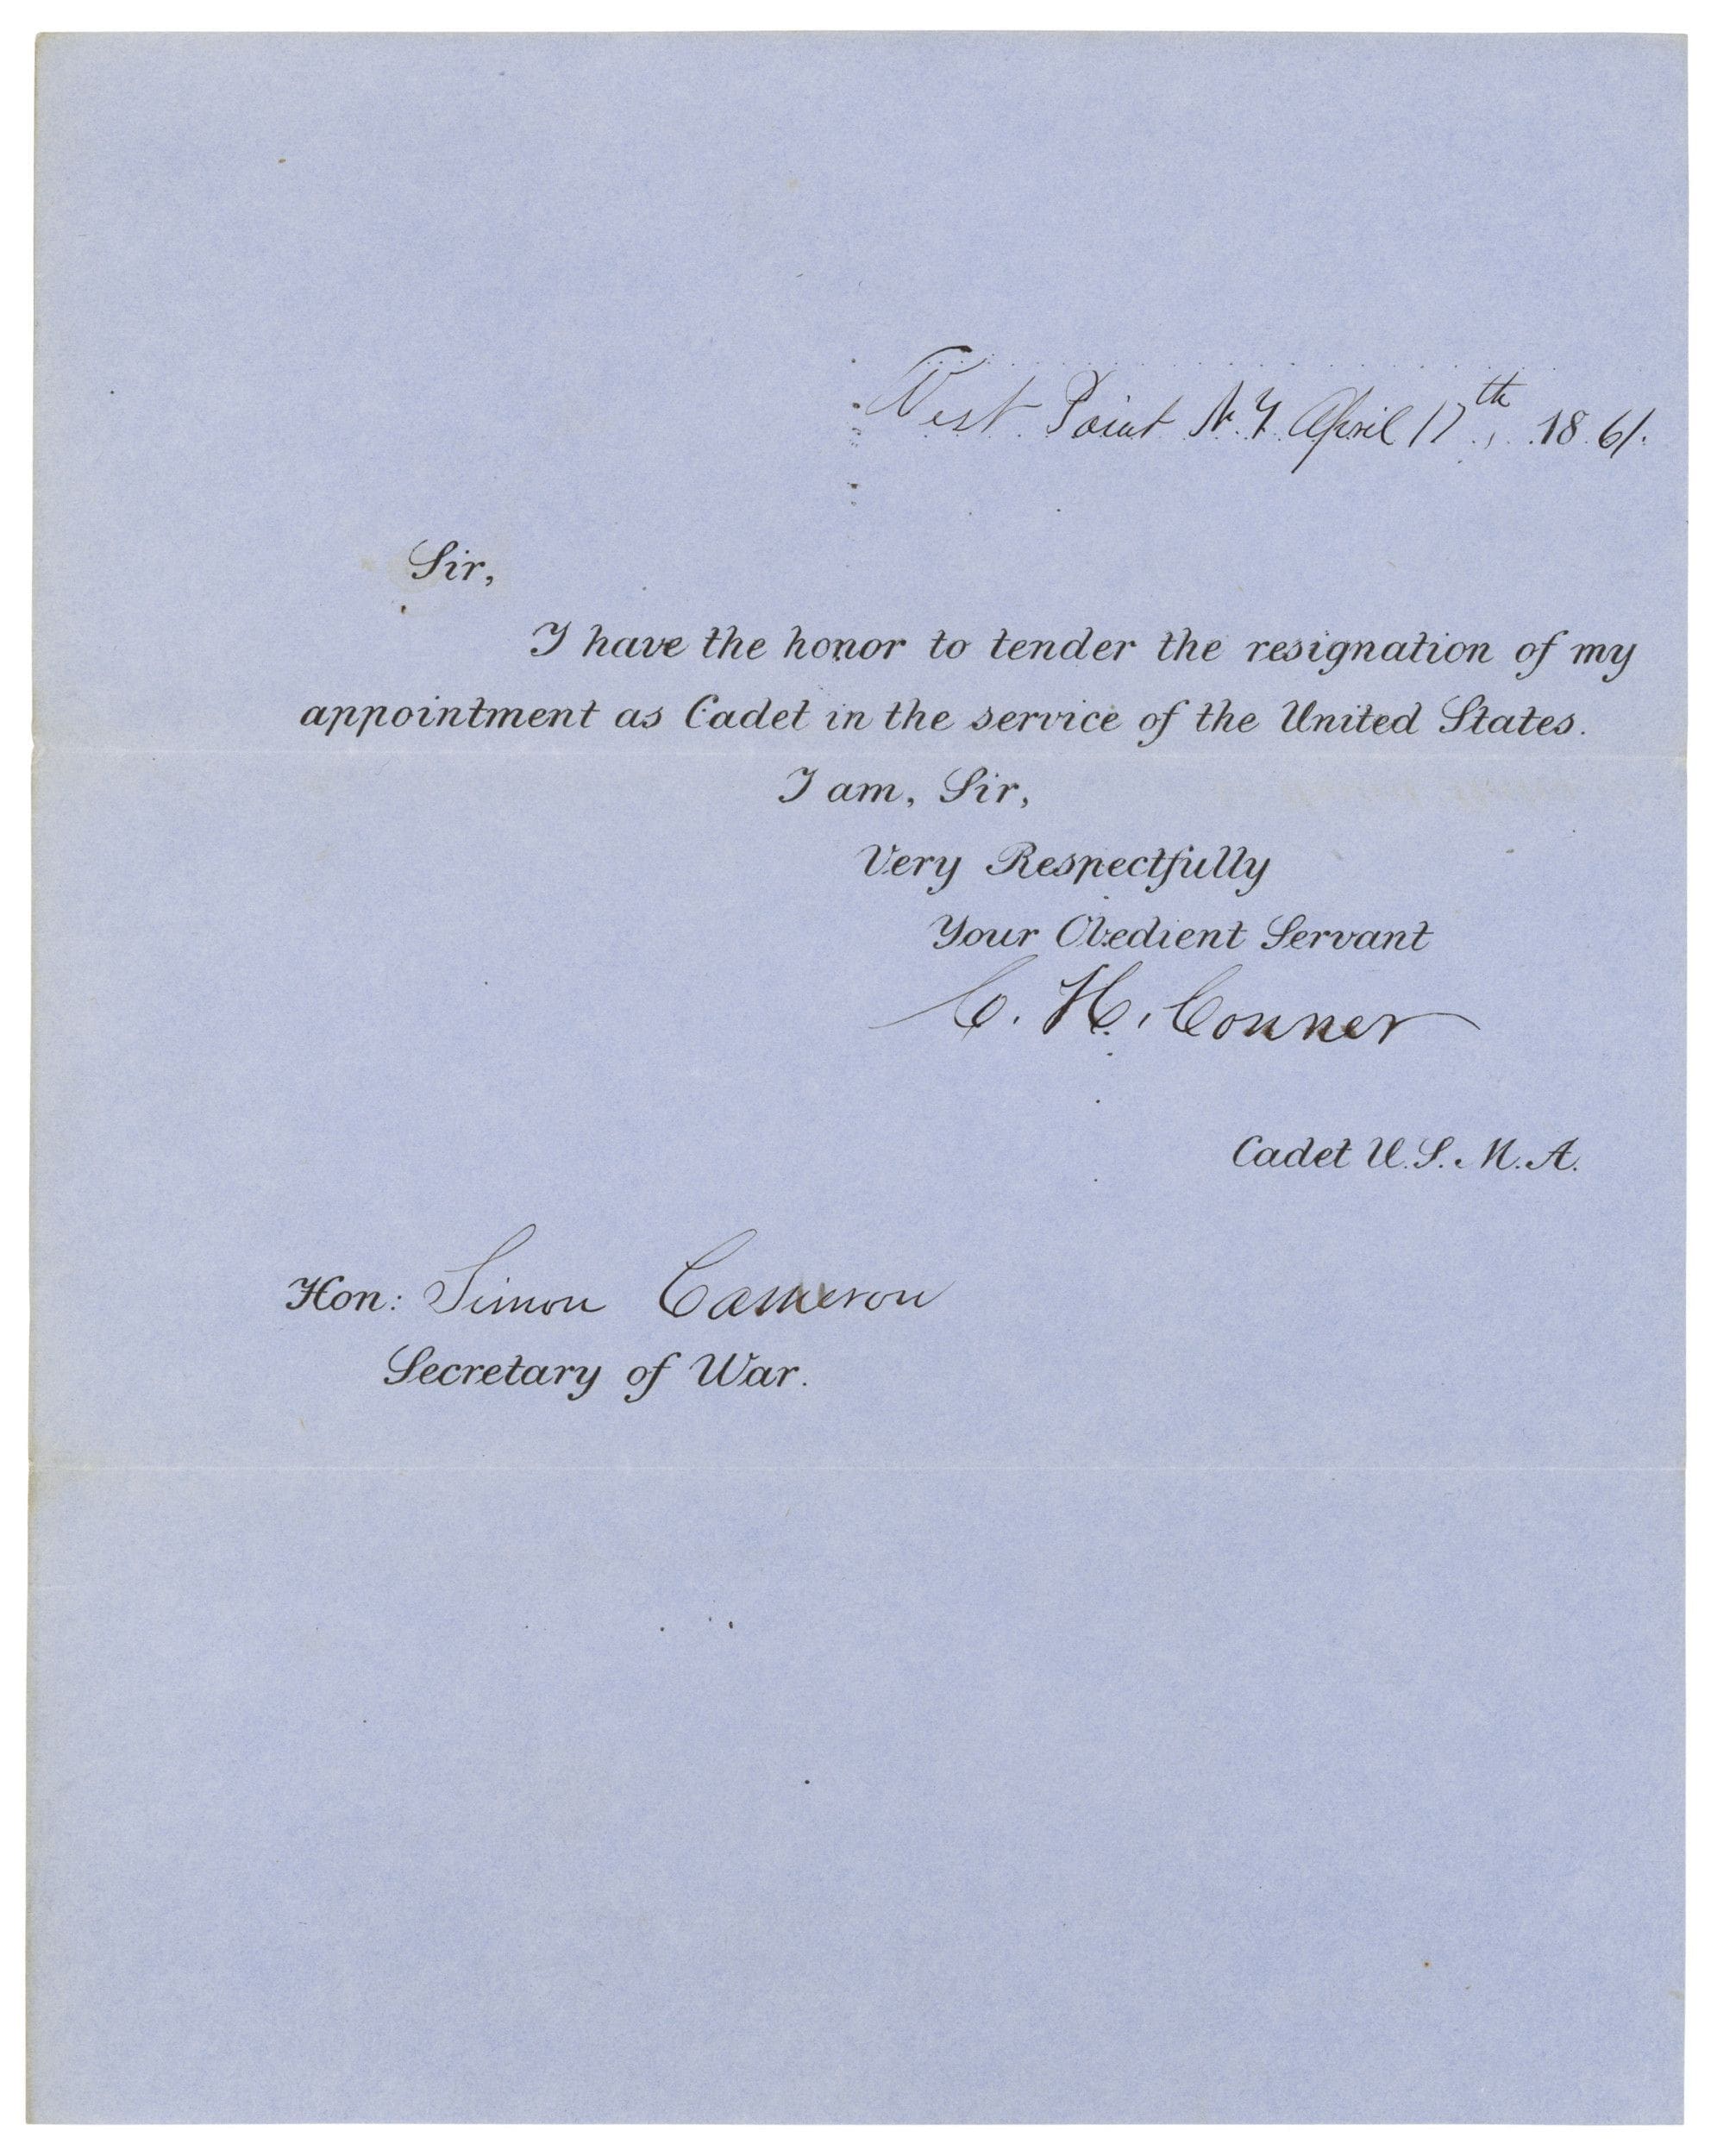 West Point N.Y April 17th, 1861.
Sir,
I have the honor to tender the resignation of my
appointment as Cadet in the service of the United States.
I am, Sir,
Very Respectfully
Your Obedient Servant
C. H. Conner
Cadet U.S.M.A.
Hon: Simon Cameron
Secretary of War.